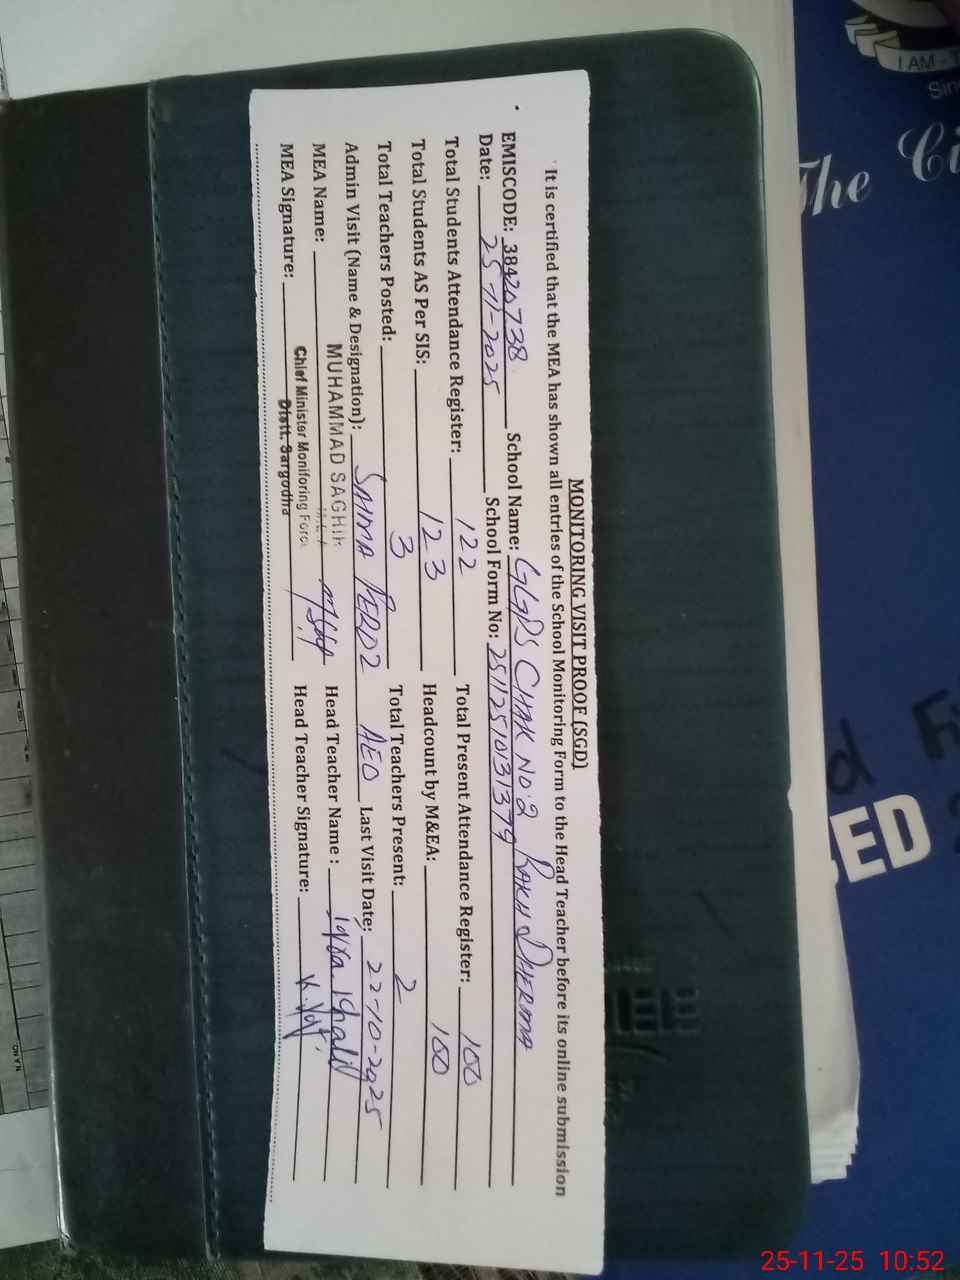 MONITORING VISIT PROOF (SGD)
It is certified that the MEA has shown all entries of the School Monitoring Form to the Head Teacher before its online submission
EMISCODE: 38420738 School Name: GGPS CHAK NO.2 RAKH DHEREMA
Date: 25-11-2025 School Form No: 251125101031379
Total Students Attendance Register: 122 Total Present Attendance Register: 100
Total Students AS Per SIS: 123 Headcount by M&EA: 100
Total Teachers Posted: 3 Total Teachers Present: 2
Admin Visit (Name & Designation): SAIMA AEO Last Visit Date: 22-10-2025
MEA Name: MUHAMMAD SAGHIR Head Teacher Name: Iqra Khalid
MEA Signature: Head Teacher Signature:
Chief Minister Monitoring Force
Distt. Sargodha
I AM
The
ED
25-11-25 10:52